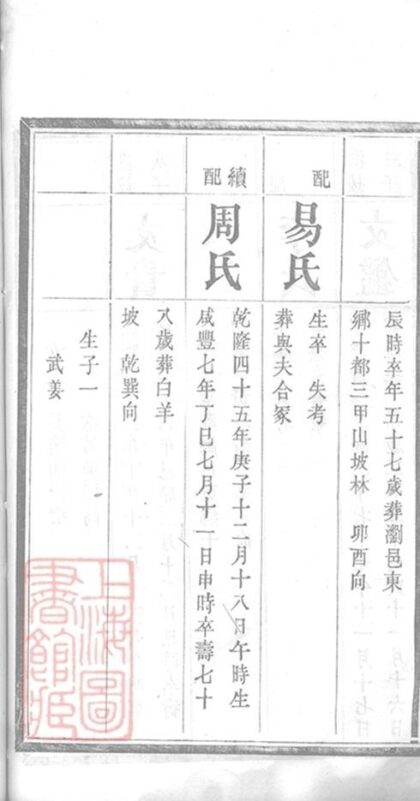 辰時卒年五十七歲葬瀏邑東
鄉十都三甲山坡林 卯酉向
配
易氏
生卒 失考
葬與夫合冢
續配
周氏
乾隆四十五年庚子十二月十八日午時生
咸豐七年丁巳七月十一日申時卒壽七十
八歲葬白羊
坡 乾巽向
生子一
武姜
上海圖
書館藏